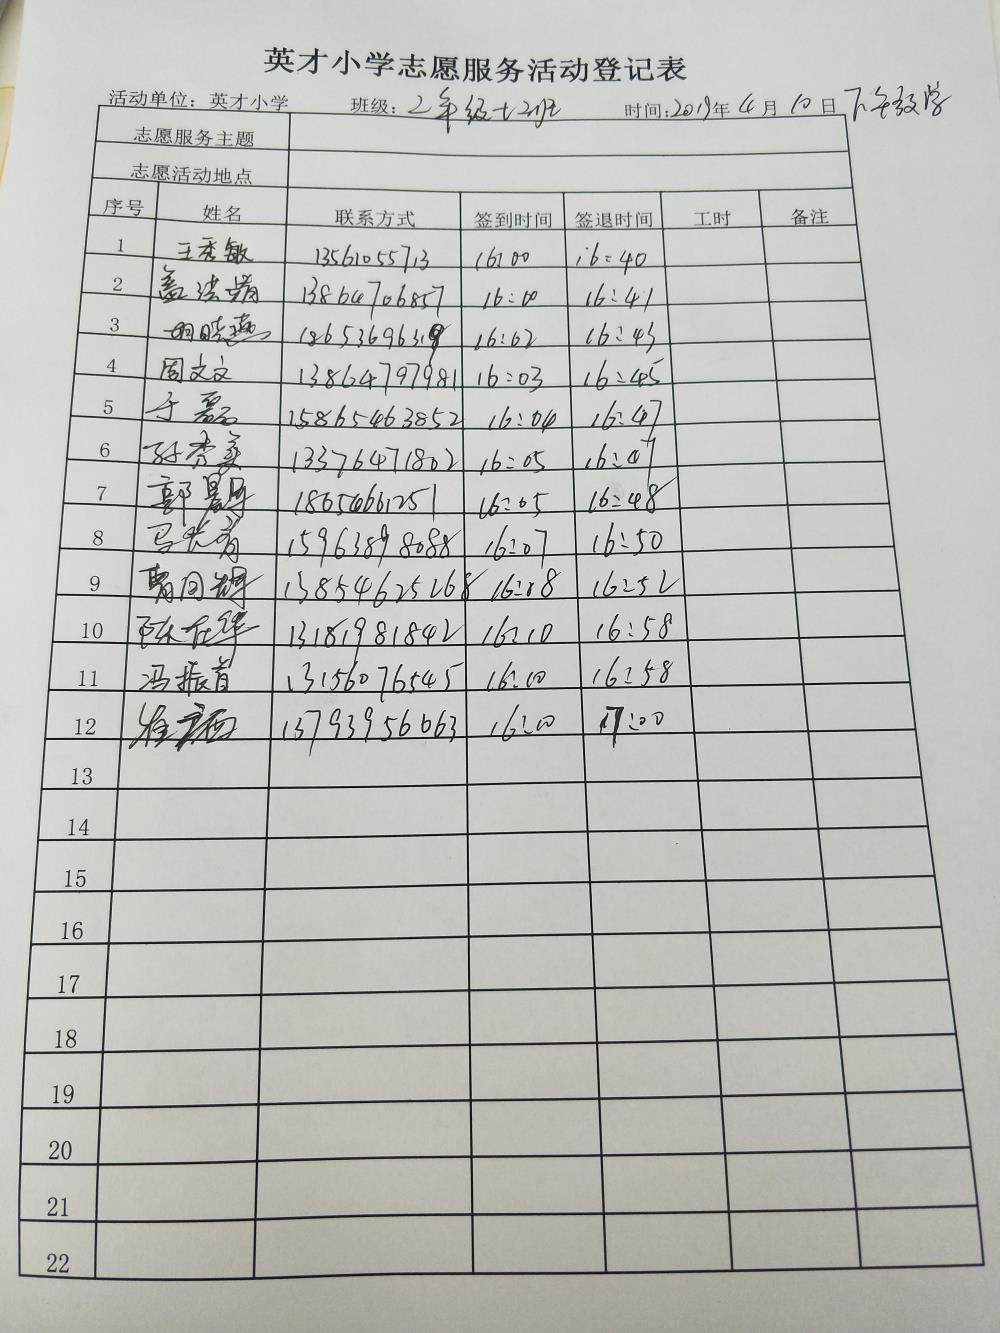 英才小学志愿服务活动登记表
活动单位：英才小学 班级：2年级十2班 时间:2019年4月10日下午放学
志愿服务主题
志愿活动地点
序号 姓名 联系方式 签到时间 签退时间 工时 备注
1 王秀敏 13561055713 16:00 16:40
2 13864706857 16:00 16:41
3 胡晓燕 16:02 16:43
4 周文文 13864797981 16:03 16:45
5 于磊 15865463852 16:04 16:47
6 孙秀美 13376471802 16:05 16:47
7 18654661251 16:05 16:48
8 15963898088 16:07 16:50
9 13854625268 16:08 16:52
10 13181981842 16:10 16:58
11 冯振首 13156076545 16:10 16:58
12 13793956063 16:00 17:00
13
14
15
16
17
18
19
20
21
22